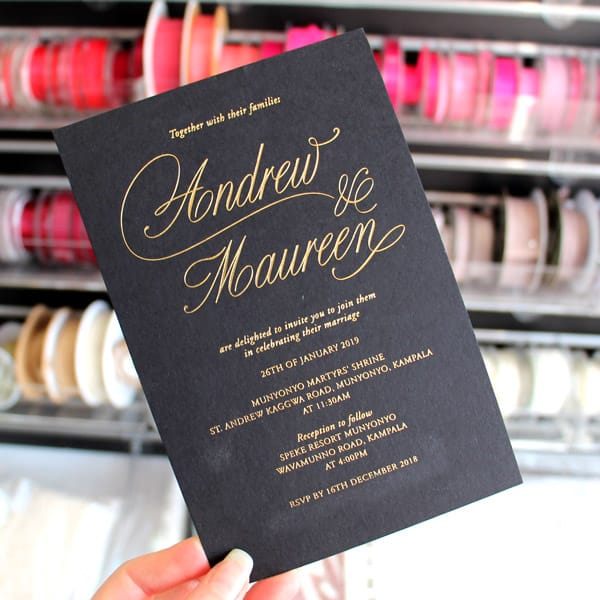 Together with their families
Andrew
&
Maureen
are delighted to invite you to join them
in celebrating their marriage
26TH OF JANUARY 2019
MUNYONYO MARTYRS' SHRINE
ST. ANDREW KAGGWA ROAD, MUNYONYO, KAMPALA
AT 11:30AM
Reception to follow
SPEKE RESORT MUNYONYO
WAVAMUNNO ROAD, KAMPALA
AT 4:00PM
RSVP BY 16TH DECEMBER 2018